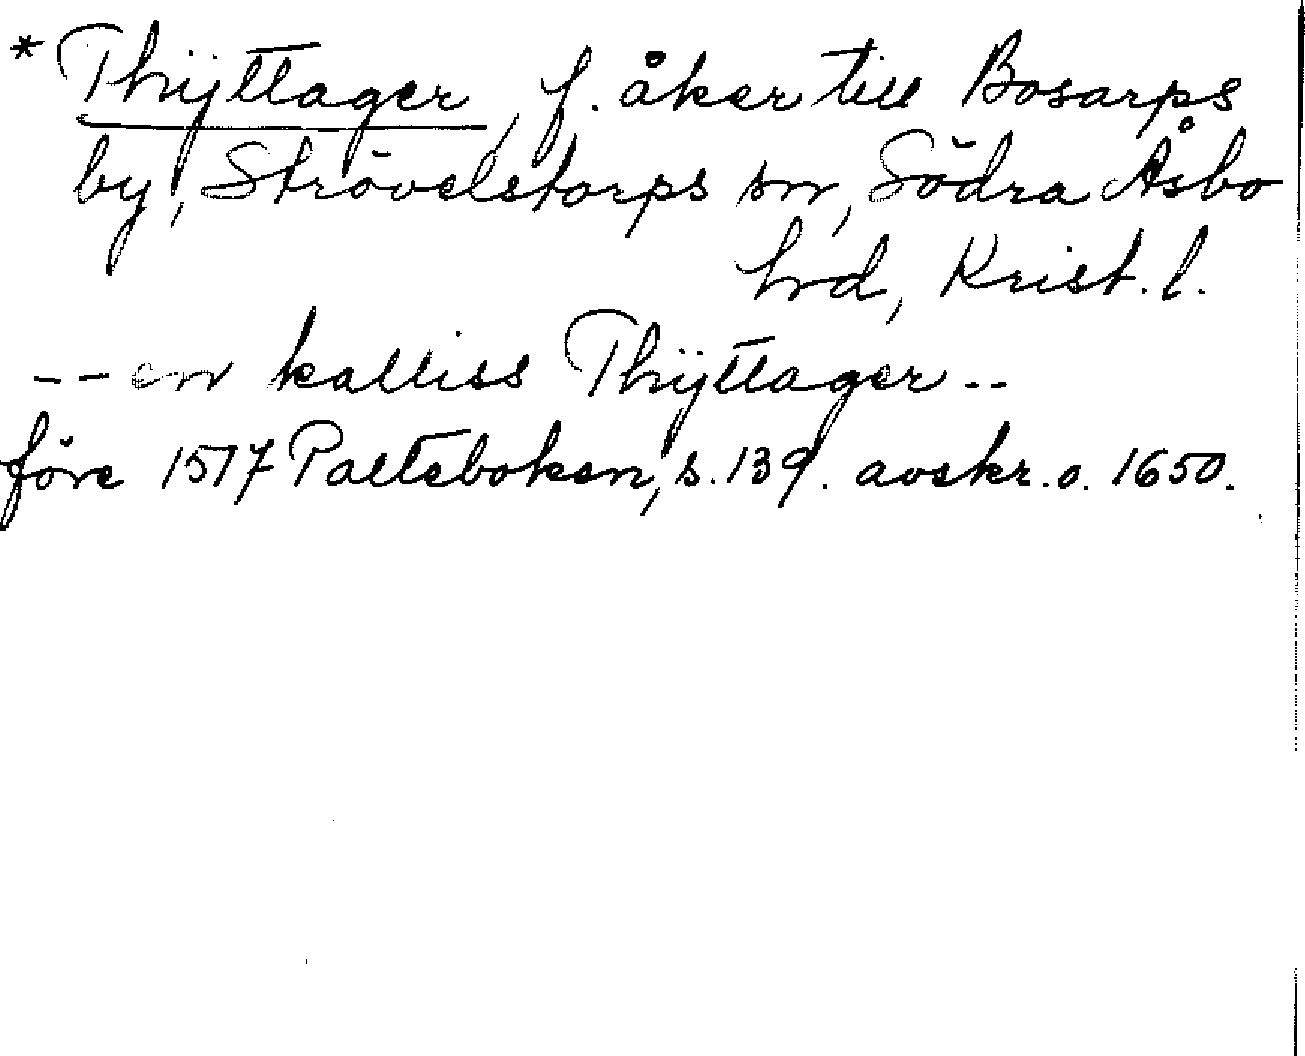 * Thÿttager, f. åker till Bosarps
by, Strövelstorps sn, Södra Åsbo
hrd, Krist. l.
-- en kalliss Thÿttager --
före 1517 Palteboken, s. 139. avskr. o. 1650.